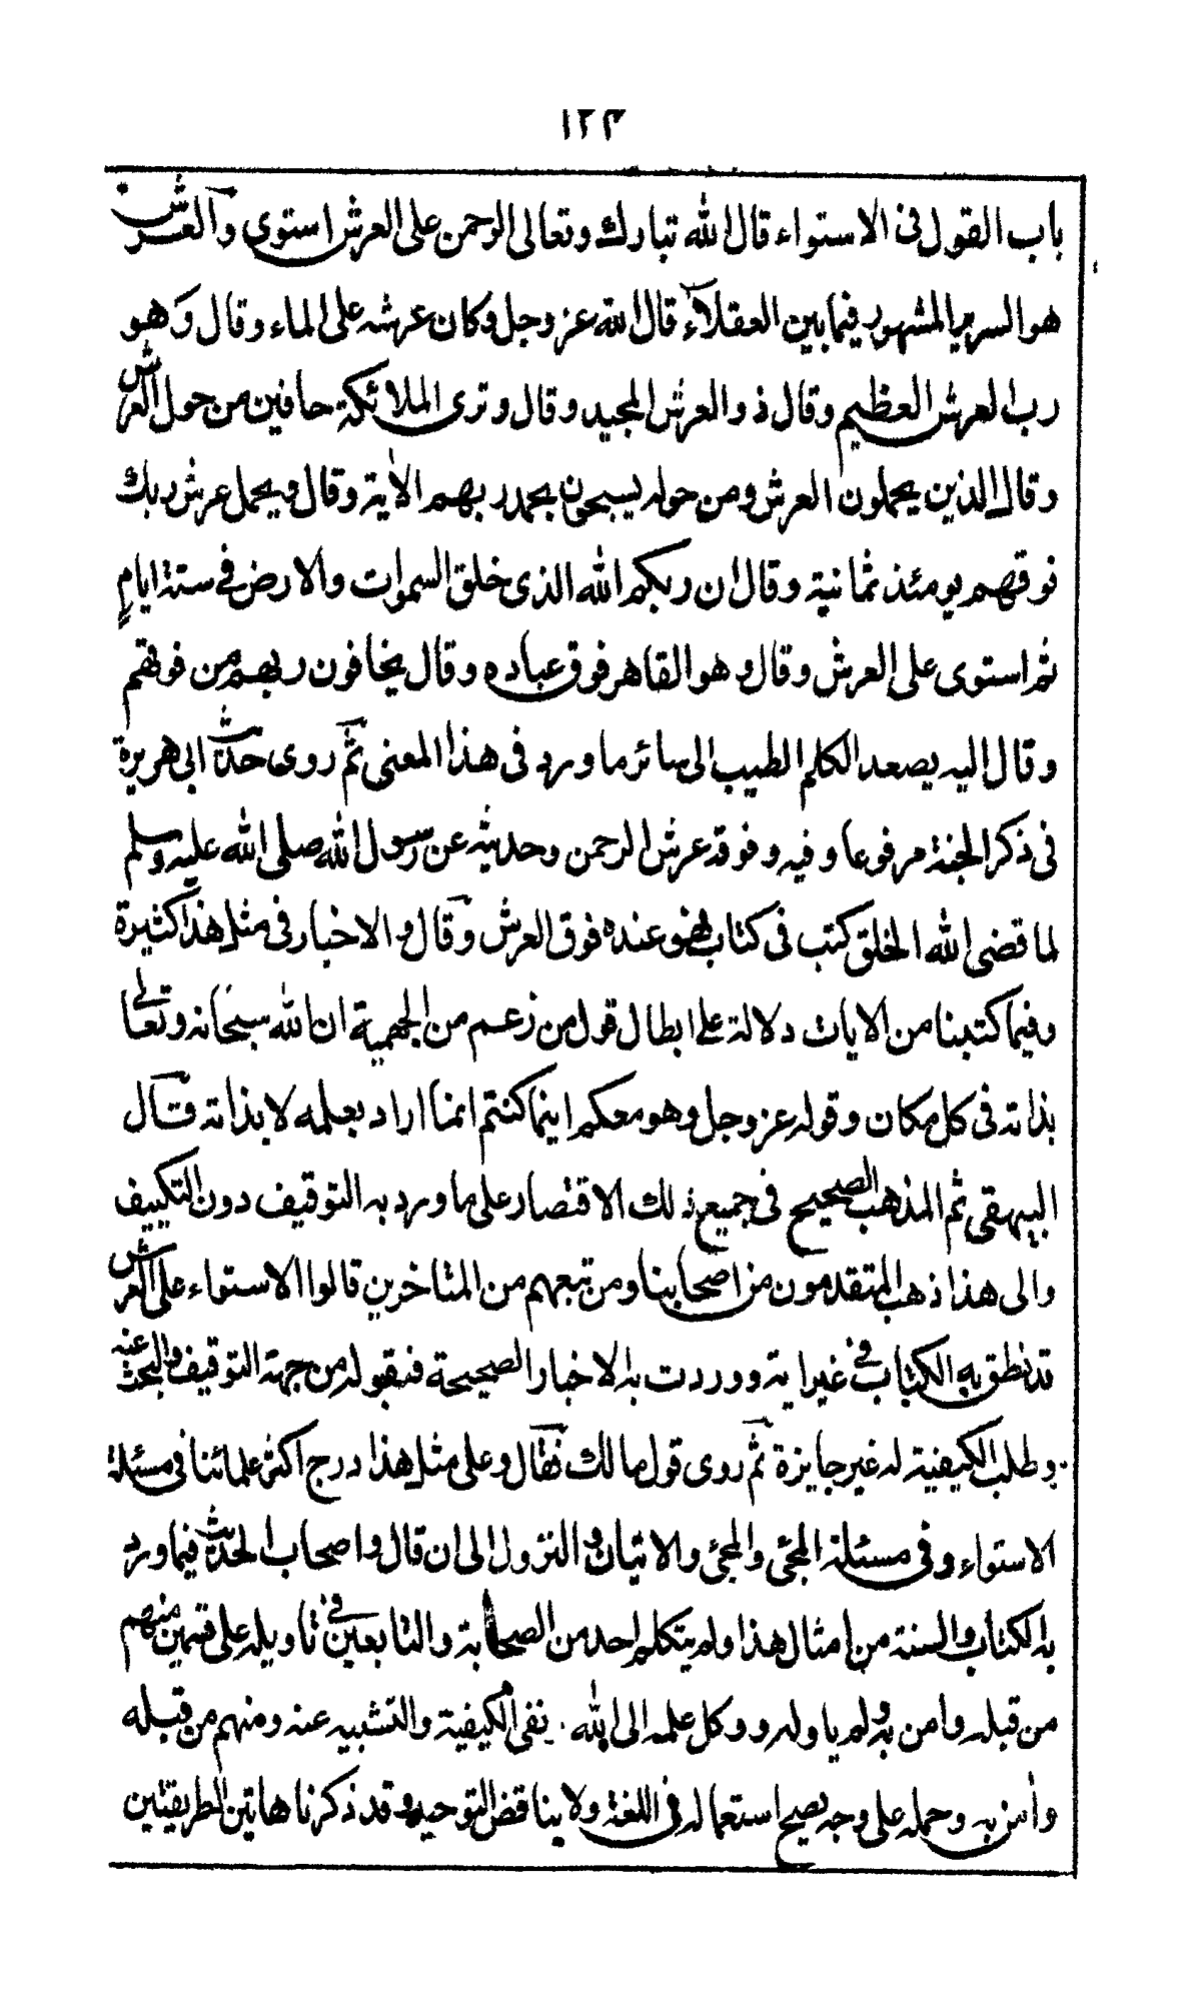 ١٢٣
باب القول فى الاستواء قال الله تبارك وتعالى الرحمن على العرش استوى والعرش
هو السرير المشهور فيما بين العقلاء قال الله عز وجل وكان عرشه على الماء وقال وهو
رب العرش العظيم وقال ذو العرش المجيد وقال وترى الملائكة حافين من حول العرش
وقال الذين يحملون العرش ومن حوله يسبحون بحمد ربهم الاية وقال ويحمل عرش ربك
فوقهم يومئذ ثمانية وقال ان ربكم الله الذى خلق السموات والارض فى ستة ايام
ثم استوى على العرش وقال وهو القاهر فوق عباده وقال يخافون ربهم من فوقهم
وقال اليه يصعد الكلم الطيب الى سائر ما ورد فى هذا المعنى ثم روى حديث ابى هريرة
فى ذكر الجنة مرفوعا وفيه وفوقه عرش الرحمن وحديثه عن رسول الله صلى الله عليه وسلم
لما قضى الله الخلق كتب فى كتاب فهو عنده فوق العرش وقال والاخبار فى مثل هذا كثيرة
وفيما كتبنا من الايات دلالة على ابطال قول من زعم من الجهمية ان الله سبحانه وتعالى
بذاته فى كل مكان وقوله عز وجل وهو معكم اينما كنتم انما اراد بعلمه لا بذاته قال
البيهقى ثم المذهب الصحيح فى جميع ذلك الاقتصار على ما ورد به التوقيف دون التكييف
والى هذا ذهب المتقدمون من اصحابنا ومن تبعهم من المتاخرين قالوا الاستواء على العرش
قد نطق به الكتاب فى غير اية ووردت به الاخبار الصحيحة فنقبوله من جهة التوقيف والبحث عنه
وطلب الكيفية له غير جايزة ثم روى قول مالك فقال وعلى مثل هذا درج اكثر علمائنا فى مسئلة
الاستواء وفى مسئلة المجئ والمجئ والاتيان والنزول الى ان قال واصحاب الحديث فيما ورد
به الكتاب والسنة من امثال هذا ولم يتكلم احد من الصحابة والتابعين فى تاويله على قسمين منهم
من قبله وامن به ولم ياوله ووكل علمه الى الله نفى الكيفية والتشبيه عنه ومنهم من قبله
وأمن به وحمله على وجه يصح استعماله فى اللغة ولا يناقض التوحيد وقد ذكرنا هاتين الطريقتين